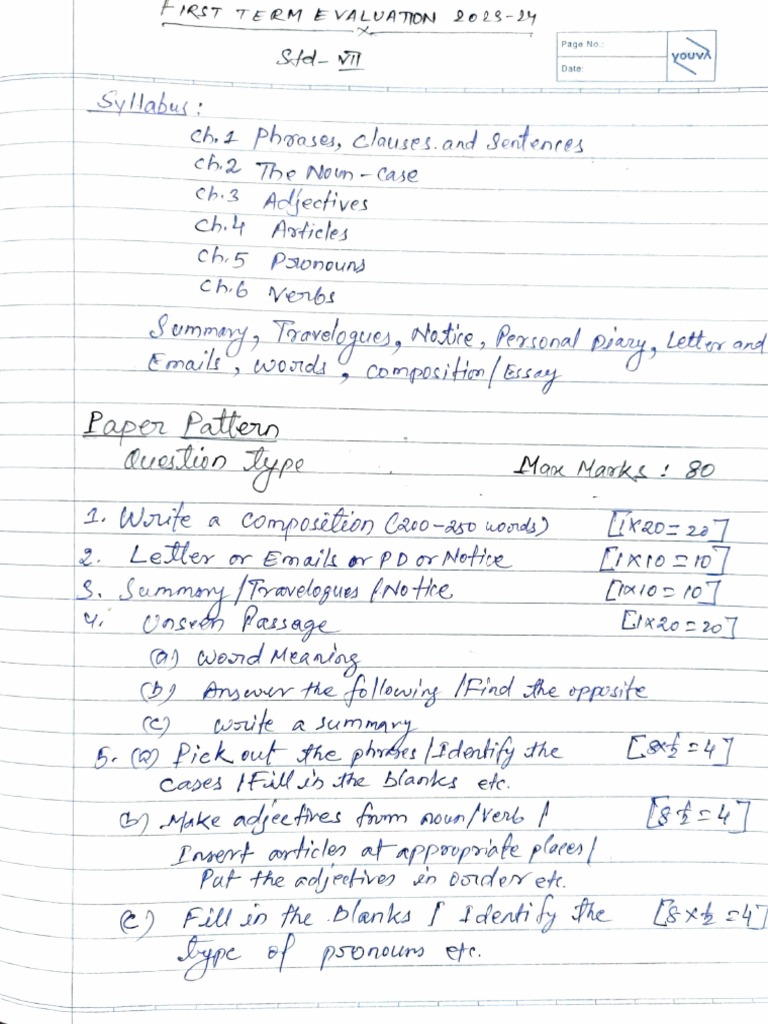 FIRST TERM EVALUATION 2023-24
Std- VII
Page No.:
Date:
YOUVA
Syllabus:
Ch.1 Phrases, Clauses.and Sentences
Ch.2 The Noun-Case
Ch.3 Adjectives
Ch.4 Articles
Ch.5 Pronouns
Ch.6 Verbs
Summary, Travelogues, Notice, Personal Diary, Letter and
Emails, words, composition/Essay
Paper Pattern
Question type Max Marks: 80
1. Write a composition (200-250 words) [1x20=20]
2. Letter or Emails or PD or Notice [1x10=10]
3. Summary/Travelogues/Notice [1x10=10]
4. Unseen Passage [1x20=20]
(a) Word Meaning
(b) Answer the following/Find the opposite
(c) Write a summary
5. (a) Pick out the phrases/Identify the [8x½=4]
cases/Fill in the blanks etc.
(b) Make adjectives from noun/verb/ [8 ½=4]
Insert articles at appropriate places/
Put the adjectives in order etc.
(c) Fill in the blanks/Identify the [8x½=4]
type of pronouns etc.